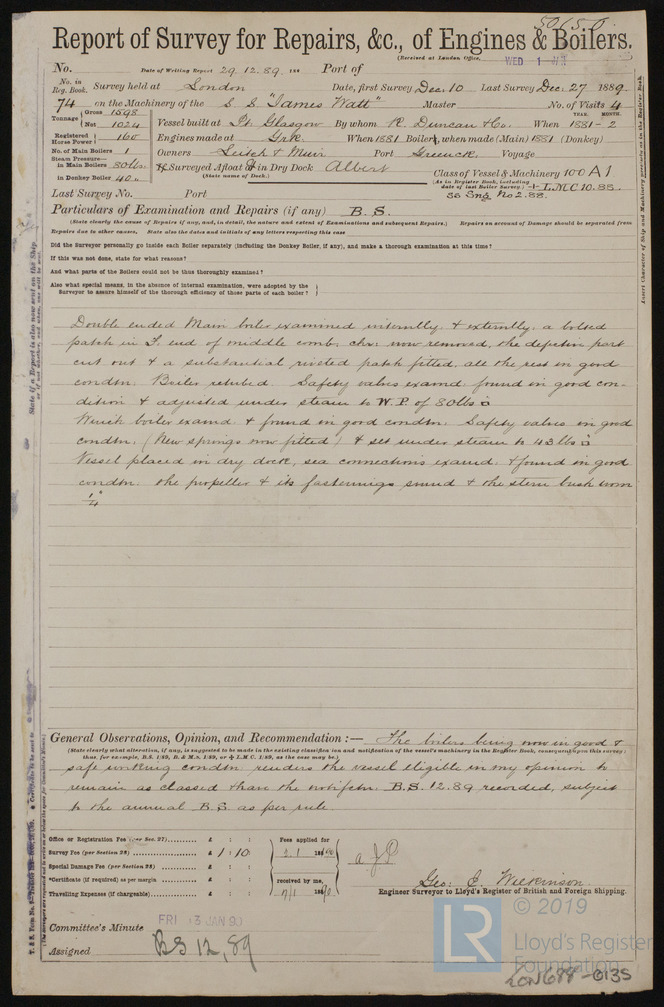 50650
Report of Survey for Repairs, &c., of Engines & Boilers.
(Received at London Office, WED 1 JAN
No. Date of Writing Report 29.12.89. 188 Port of
No. in Reg. Book. Survey held at London Date, first Survey Dec. 10 Last Survey Dec. 27 1889.
74 on the Machinery of the S.S. "James Watt" Master No. of Visits 4
Tonnage Gross 1598 Net 1024 Vessel built at Pt. Glasgow By whom R. Duncan & Co. When 1881-2
YEAR. MONTH.
Registered Horse Power 160 Engines made at Grk. When 1881 Boilers, when made (Main) 1881 (Donkey)
No. of Main Boilers 1 Owners Leitch & Muir Port Greenock. Voyage
Steam Pressure— in Main Boilers 80 lbs. in Donkey Boiler 40
If Surveyed Afloat or in Dry Dock Albert
(State name of Dock.)
Class of Vessel & Machinery 100 A1
(As in Register Book, including date of last Boiler Survey.) + L.M.C 10.85.
SS Lng No 2.88.
Last Survey No. Port
Particulars of Examination and Repairs (if any) B. S.
(State clearly the cause of Repairs if any, and, in detail, the nature and extent of Examinations and subsequent Repairs.) Repairs on account of Damage should be separated from
Repairs due to other causes. State also the dates and initials of any letters respecting this case
Did the Surveyor personally go inside each Boiler separately (including the Donkey Boiler, if any), and make a thorough examination at this time?
If this was not done, state for what reasons?
And what parts of the Boilers could not be thus thoroughly examined?
Also what special means, in the absence of internal examination, were adopted by the
Surveyor to assure himself of the thorough efficiency of those parts of each boiler?
Double ended Main boiler examined internally & externally, a bolted
patch in F. end of middle comb. chr. now removed, the defective part
cut out & a substantial riveted patch fitted, all the rest in good
condtn. Boiler retubed Safety valves examd. found in good con-
dition & adjusted under steam to W.P. of 80 lbs
Winch boiler examd. & found in good condtn. Safety valves in good
condtn. (New springs now fitted) & set under steam to 43 lbs
Vessel placed in dry dock, sea connections examd. & found in good
condtn. the propeller & its fastenings sound & the stern bush worn
1/4"
General Observations, Opinion, and Recommendation :— The boilers being now in good &
(State clearly what alteration, if any, is suggested to be made in the existing classification and notification of the vessel's machinery in the Register Book, consequent upon this survey:
thus, for example, B.S. 1/89, B. & M.S. 1/89, or + L.M.C. 1/89, as the case may be.)
safe working condtn. renders the vessel eligible in my opinion to
remain as classed & have the notifctn. B.S. 12.89 recorded, subject
to the annual B.S. as per rule.
Office or Registration Fee (per Sec. 27) £ : :
Survey Fee (per Section 28) £ 1 : 10
Special Damage Fee (per Section 28) £ : :
*Certificate (if required) as per margin £ : :
Travelling Expenses (if chargeable) £ : :
Fees applied for
2/1 1890
received by me,
7/1 1890
Geo: E. Wilkinson
Engineer Surveyor to Lloyd's Register of British and Foreign Shipping.
Committee's Minute FRI 3 JAN 90
Assigned BS 12,89
State if a Report is also now sent on the Ship
Insert Character of Ship and Machinery precisely as in the Register Book.
LR
© 2019
Lloyd's Register
Foundation
LON688-0135